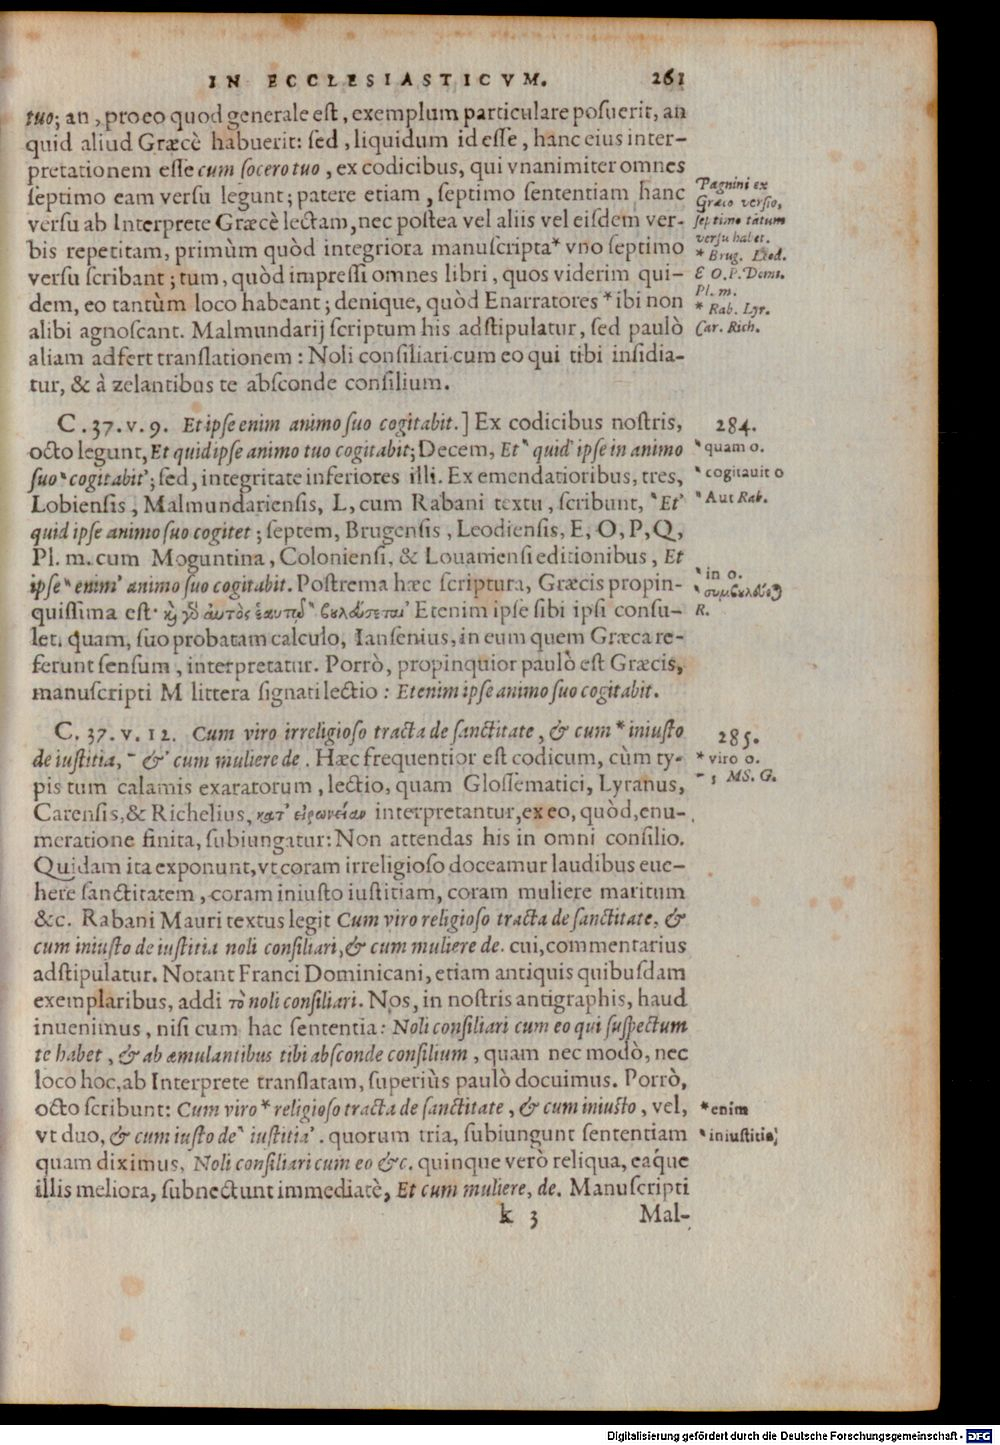 IN ECCLESIASTICVM. 261
tuo; an, pro eo quod generale est, exemplum particulare posuerit, an
quid aliud Græcè habuerit: sed, liquidum id esse, hanc eius inter-
pretationem esse cum socero tuo, ex codicibus, qui vnanimiter omnes
septimo eam versu legunt; patere etiam, septimo sententiam hanc
versu ab Interprete Græcè lectam, nec postea vel aliis vel eisdem ver-
bis repetitam, primùm quòd integriora manuscripta* vno septimo
versu scribant; tum, quòd impressi omnes libri, quos viderim qui-
dem, eo tantùm loco habeant; denique, quòd Enarratores * ibi non
alibi agnoscant. Malmundarij scriptum his adstipulatur, sed paulò
aliam adfert translationem: Noli consiliari cum eo qui tibi insidia-
tur, & à zelantibus te absconde consilium.
Pagnini ex
Græco versio,
septimo tātum
versu habet.
* Brug. Leod.
E O.P. Dems.
Pl. m.
* Rab. Lyr.
Car. Rich.
C. 37. v. 9. Et ipse enim animo suo cogitabit.] Ex codicibus nostris,
octo legunt, Et quid ipse animo tuo cogitabit; Decem, Et‵ quid′ ipse in animo
suo‵ cogitabit′; sed, integritate inferiores illi. Ex emendatioribus, tres,
Lobiensis, Malmundariensis, L, cum Rabani textu, scribunt, ‵Et′
quid ipse animo suo cogitet; septem, Brugensis, Leodiensis, E, O, P, Q,
Pl. m. cum Moguntina, Coloniensi, & Louaniensi editionibus, Et
ipse‵ enim′ animo suo cogitabit. Postrema hæc scriptura, Græcis propin-
quissima est· κỳ γδ αυτὸς ἑαυτῷ‵ βουλεύσεται′ Etenim ipse sibi ipsi consu-
let. quam, suo probatam calculo, Iansenius, in eum quem Græca re-
ferunt sensum, interpretatur. Porrò, propinquior paulò est Græcis,
manuscripti M littera signati lectio: Etenim ipse animo suo cogitabit.
284.
‵ quam o.
‵ cogitauit o
‵ Aut Rab.
‵ in o.
R.
C. 37. v. 12. Cum viro irreligioso tracta de sanctitate, & cum * iniusto
de iustitia, ⁻ &′ cum muliere de. Hæc frequentior est codicum, cùm ty-
pis tum calamis exaratorum, lectio, quam Glossematici, Lyranus,
Carensis, & Richelius, κατ' εἰρωνείαν interpretantur, ex eo, quòd, enu-
meratione finita, subiungatur: Non attendas his in omni consilio.
Quidam ita exponunt, vt coram irreligioso doceamur laudibus eue-
here sanctitatem, coram iniusto iustitiam, coram muliere maritum
&c. Rabani Mauri textus legit Cum viro religioso tracta de sanctitate, &
cum iniusto de iustitia noli consiliari, & cum muliere de. cui, commentarius
adstipulatur. Notant Franci Dominicani, etiam antiquis quibusdam
exemplaribus, addi τὸ noli consiliari. Nos, in nostris antigraphis, haud
inuenimus, nisi cum hac sententia: Noli consiliari cum eo qui suspectum
te habet, & ab æmulantibus tibi absconde consilium, quam nec modò, nec
loco hoc, ab Interprete translatam, superiùs paulò docuimus. Porrò,
octo scribunt: Cum viro * religioso tracta de sanctitate, & cum iniusto, vel,
vt duo, & cum iusto de‵ iustitia′. quorum tria, subiungunt sententiam
quam diximus, Noli consiliari cum eo &c. quinque verò reliqua, eaq́ue
illis meliora, subnectunt immediatè, Et cum muliere, de. Manuscripti
285.
* viro o.
⁻ 5 MS. G.
* enim
‵ iniustitia,
k 3 Mal-
Digitalisierung gefördert durch die Deutsche Forschungsgemeinschaft - DFG